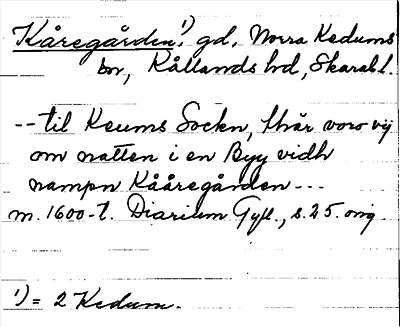 Kåregården¹⁾, gd, Norra Kedums
sn, Kållands hd, Skarab. l.
-- til Keums Sockn, thär voro vij
om natten i en Byy vidh
nampn Kååregården ---
m. 1600-t. Diarium Gyll., s. 25. orig
¹⁾ = 2 Kedum.